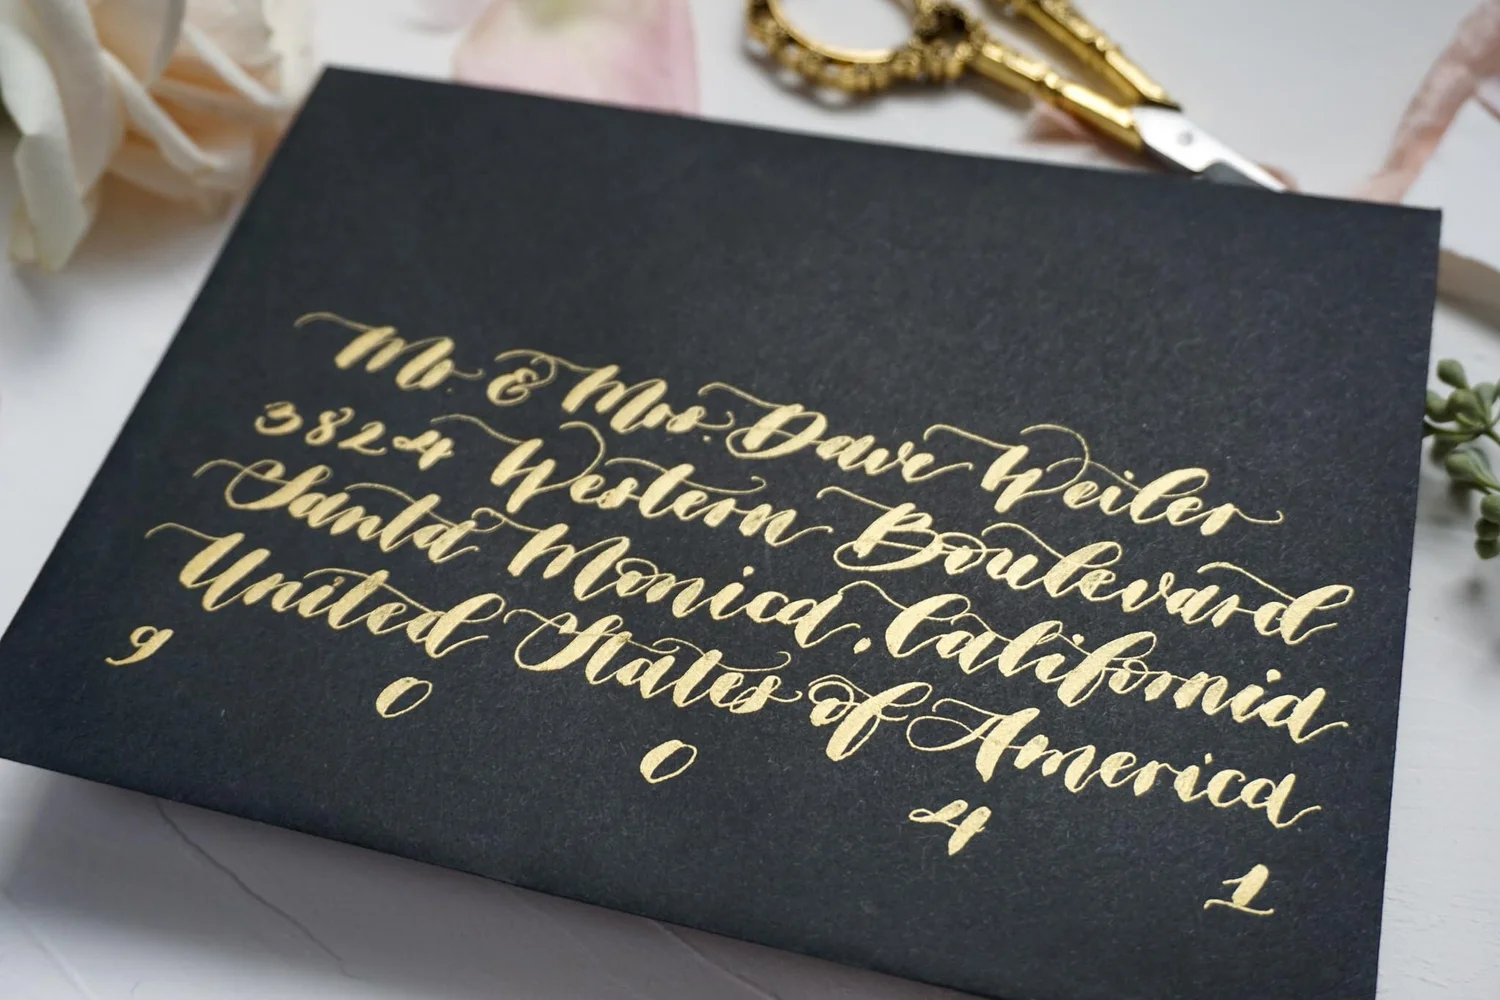 Mr. & Mrs. Dave Weiler
3824 Western Boulevard
Santa Monica, California
United States of America
9 0 0 4 1